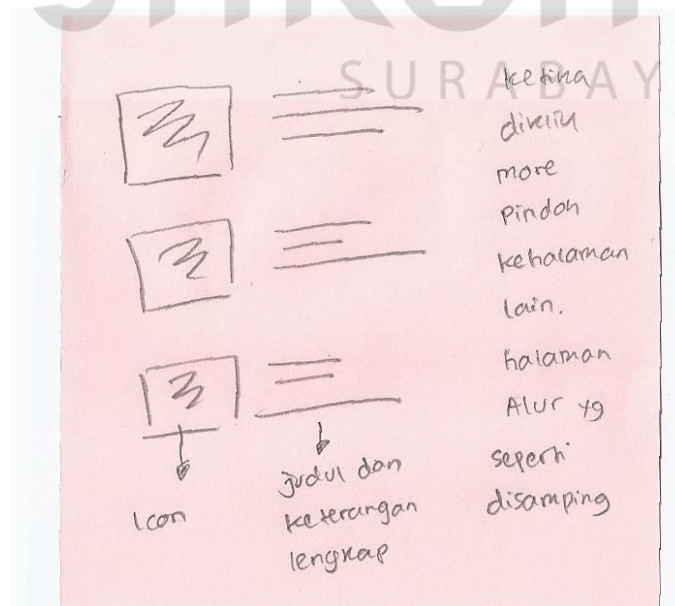 SURABAY
ketika
diklik
more
pindah
kehalaman
lain.
halaman
Alur yg
seperti
disamping
Icon
judul dan
keterangan
lengkap